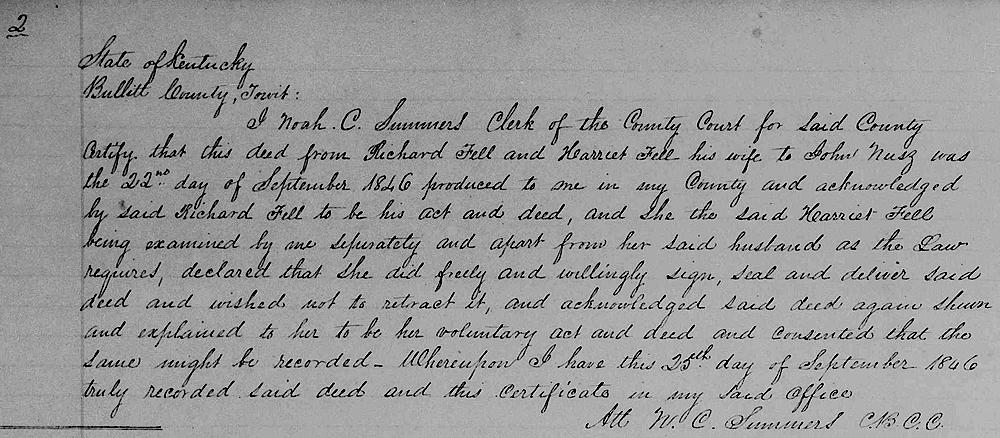 2
State of Kentucky
Bullitt County, Towit:
I Noah. C. Summers Clerk of the County Court for said County
Certify. that this deed from Richard Fell and Harriet Fell his wife to John Nusz was
the 22nd day of September 1846 produced to me in my County and acknowledged
by said Richard Fell to be his act and deed, and she the said Harriet Fell
being examined by me seperately and apart from her said husband as the Law
requires, declared that she did freely and willingly sign, seal and deliver said
deed and wished not to retract it, and acknowledged said deed again shewn
and explained to her to be her voluntary act and deed and consented that the
same might be recorded - Whereupon I have this 25th day of September 1846
truly recorded said deed and this Certificate in my said Office
Att N. C. Summers C.B.C.C.